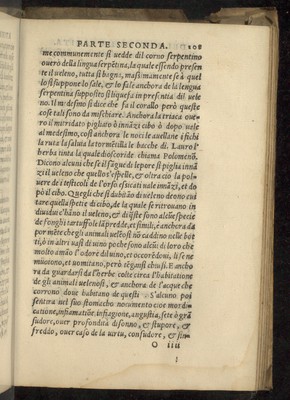 PARTE SECONDA. 108
me communemente si uedde dil corno serpentino
ouerò della lingua serpẽtina, la quale essendo presen
te il ueleno, tutta si bagni, massimamente se à quel
lo si suppone lo sale, & lo fale anchora de la lengua
serpentina supposito si liquefa in presentia dil uele
no. Il medesmo si dice che fa il corallo però queste
cose tali sono da mischiare. Anchora la triaca oue-
ro il mitridato pigliato ò innãzi cibo ò dopo uale
al medesimo, cosi anchora le noci le auellane i fichi
la ruta la saluia la tormẽtilla le bacche di Lauro l'
herba tinta la quale dioscoride chiama Polomoño.
Dicono alcuni che se il fegue di lepore si piglia innã
zi il ueleno che quello l'espelle, & oltra ciò la pol-
uere de i testicoli de l'orso essucati uale innãzi, et do
pò il cibo. Quegli che si dubitão di ueleno deono eui
tare quella spetie di cibo, de le quale se ritrouano in
diuidue c'hãno il ueleno, & di iste sono alcũe specie
de fonghi tartuffole lãprede, et simili, è anchora da
por mẽte che gli animali uelenosi nõ cadino nelle bot
ti, ò in altri uasi di uino poche sono alcũi di loro che
molto amão l'odore dil uino, et occorrẽdoui, li se ne
muiono, et uomitano, però tẽgansi chiusi. E ancho
ra da guardarsi da l'herbe colte circa l'habitatione
de gli animali uelenosi, & anchora de l'acque che
corrono doue habitano de questi. S'alcuno poi
sentira nel suo stomacho nocumento cioe mordi-
catione, infiamatiõe. infiagione, angustia, sete ò grã
sudore, ouer profondità di sonno, & stupore, &
freddo, ouer caso de la uirtu, con sudore, & sin-
O iiii